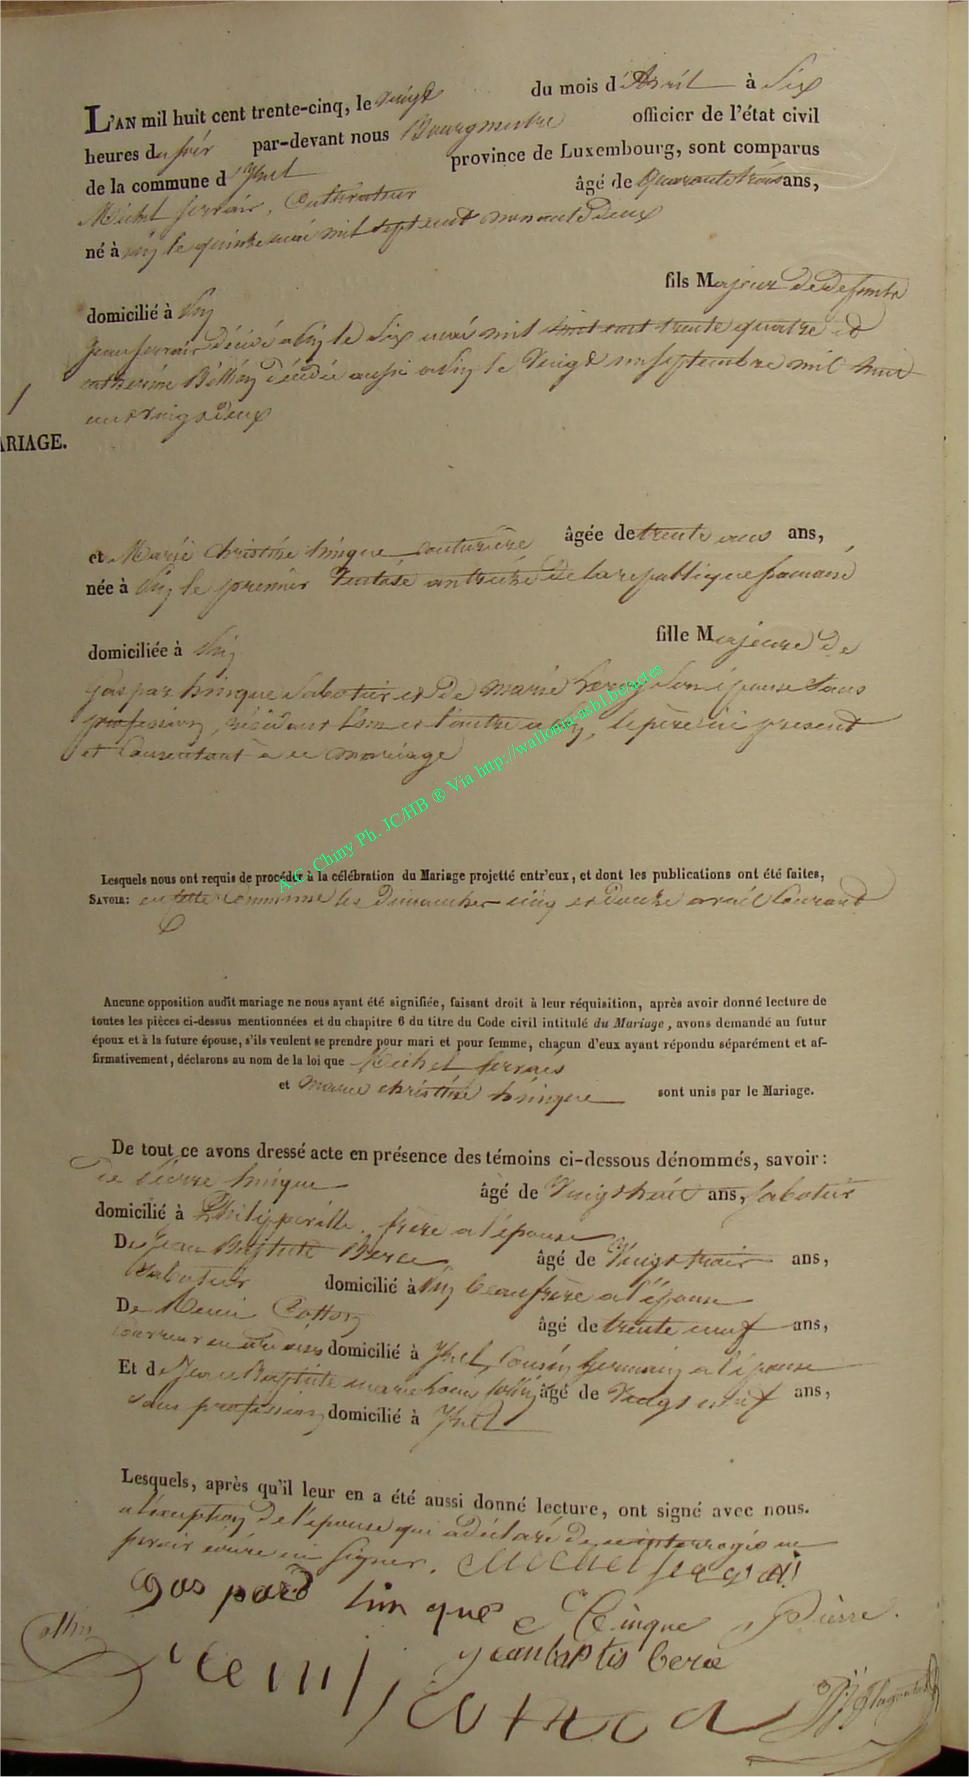 L'AN mil huit cent trente-cinq, le vingt du mois d'Avril à Six
heures du soir par-devant nous Bourgmestre officier de l'état civil
de la commune d'Izel province de Luxembourg, sont comparus
Michel ferrais, Cultivateur âgé de Quarante trois ans,
né à le quinze mai mil sept cent nonante Deux
domicilié à fils Majeur de Defunts
jean ferrais Décédé a le Six mai mil huit cent trente quatre et
catherine Décédée aussi a le Vingt un septembre mil huit
cent vingt Deux
ARIAGE.
et Marie Christine hinque couturière âgée de trente ans ans,
née à le premier an treize De la republique francaise
domiciliée à fille Majeure De
Gaspar hinque Sabotier et De marie Son épouse Sans
profession, résidant l'un et l'autre a le père ici present
et Consentant à ce mariage
A.C. Chiny Ph. JC/HB ® Via http://wallonia-asbl.be/actes
Lesquels nous ont requis de procéder à la célébration du Mariage projetté entr'eux, et dont les publications ont été faites,
SAVOIR: en cette Commune les Dimanches cinq et Douze avril Courant
Aucune opposition audit mariage ne nous ayant été signifiée, faisant droit à leur réquisition, après avoir donné lecture de
toutes les pièces ci-dessus mentionnées et du chapitre 6 du titre du Code civil intitulé du Mariage, avons demandé au futur
époux et à la future épouse, s'ils veulent se prendre pour mari et pour femme, chacun d'eux ayant répondu séparément et af-
firmativement, déclarons au nom de la loi que Michel ferrais
et marie christine hinque sont unis par le Mariage.
De tout ce avons dressé acte en présence des témoins ci-dessous dénommés, savoir:
De Pierre hinque âgé de Vingt huit ans, Sabotier
domicilié à Philippeville, frère a l'épouse
De Jean Baptiste âgé de Vingt trois ans,
Sabotier domicilié à beaufrère a l'épouse
De Remi Cotton âgé de trente neuf ans,
domicilié à Izel, Cousin Germain a l'épouse
Et de Jean Baptiste marie Louis âgé de Vingt neuf ans,
Sans profession domicilié à Izel
Lesquels, après qu'il leur en a été aussi donné lecture, ont signé avec nous.
a l'exception De l'épouse qui a déclaré De ce interrogée ne
savoir écrire ni signer. Michel
Gaspard hinque hinque Pierre.
jean baptis
remi